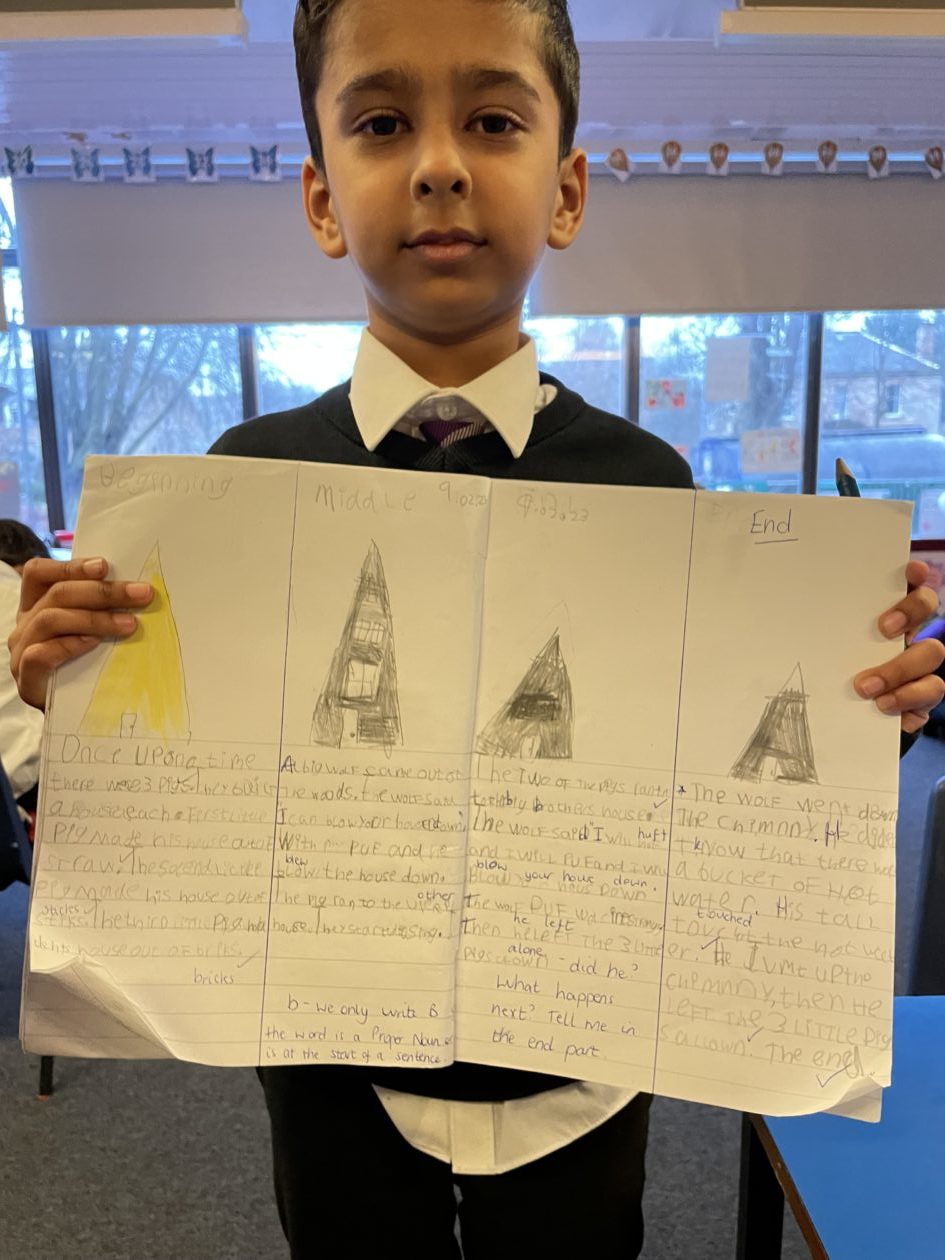 Beginning
Once upon a time
there were 3 Pigs
a house each. First little
Pig made his house out of
straw. The second little
Pig made his house out of
sticks
The third little Pig
his house out of briks.
bricks
Middle
A big wolf came out of
the woods. the wolf said
I can blow your house down
With PUF and
blew
blow the house down.
other
The pig ran to the
house.
b - we only write B
the word is a Proper Noun or
is at the start of a sentence.
9.03.23
The Two of the Pigs ran
to brothers house
The wolf saed "I will huft
and I will PUF and I will
blow your hous down.
blow hous down
The wolf PUF
he left
Then he left The 3 little
alone
Pigs - did he?
What happens
next? Tell me in
the end part
End
* The wolf went down
The chimnny. He
know that there was
a bucket of Hot
water. His tall
touched
the hot
er. He Jumt up the
chemnny, then He
Left The 3 Little Pig
s alown. The end.